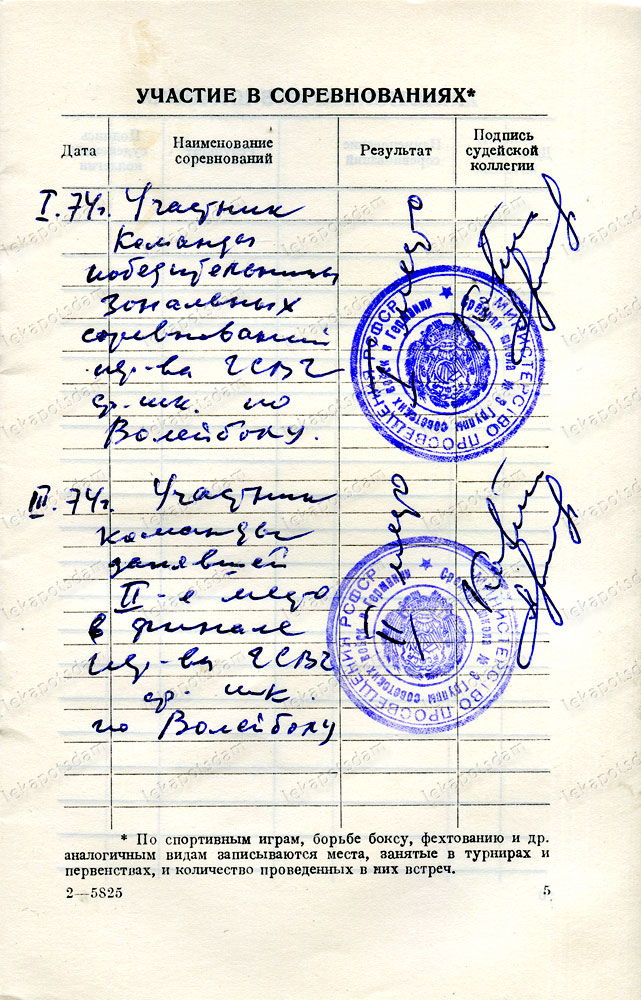 УЧАСТИЕ В СОРЕВНОВАНИЯХ*
Дата
Наименование
соревнований
Результат
Подпись
судейской
коллегии
I. 74г. Участник
команды
победительницы
зональных
соревнований
пер-ва ГСВГ
ср. шк. по
Волейболу.
I место
III. 74г. Участник
команды
занявшей
II-е место
в финале
пер-ва ГСВГ
ср. шк.
по Волейболу
II место
МИНИСТЕРСТВО ПРОСВЕЩЕНИЯ РСФСР
Средняя школа № 3 Группы советских войск в Германии
МИНИСТЕРСТВО ПРОСВЕЩЕНИЯ РСФСР
Средняя школа № 3 Группы советских войск в Германии
* По спортивным играм, борьбе боксу, фехтованию и др.
аналогичным видам записываются места, занятые в турнирах и
первенствах, и количество проведенных в них встреч.
2—5825
5
lekapotsdam